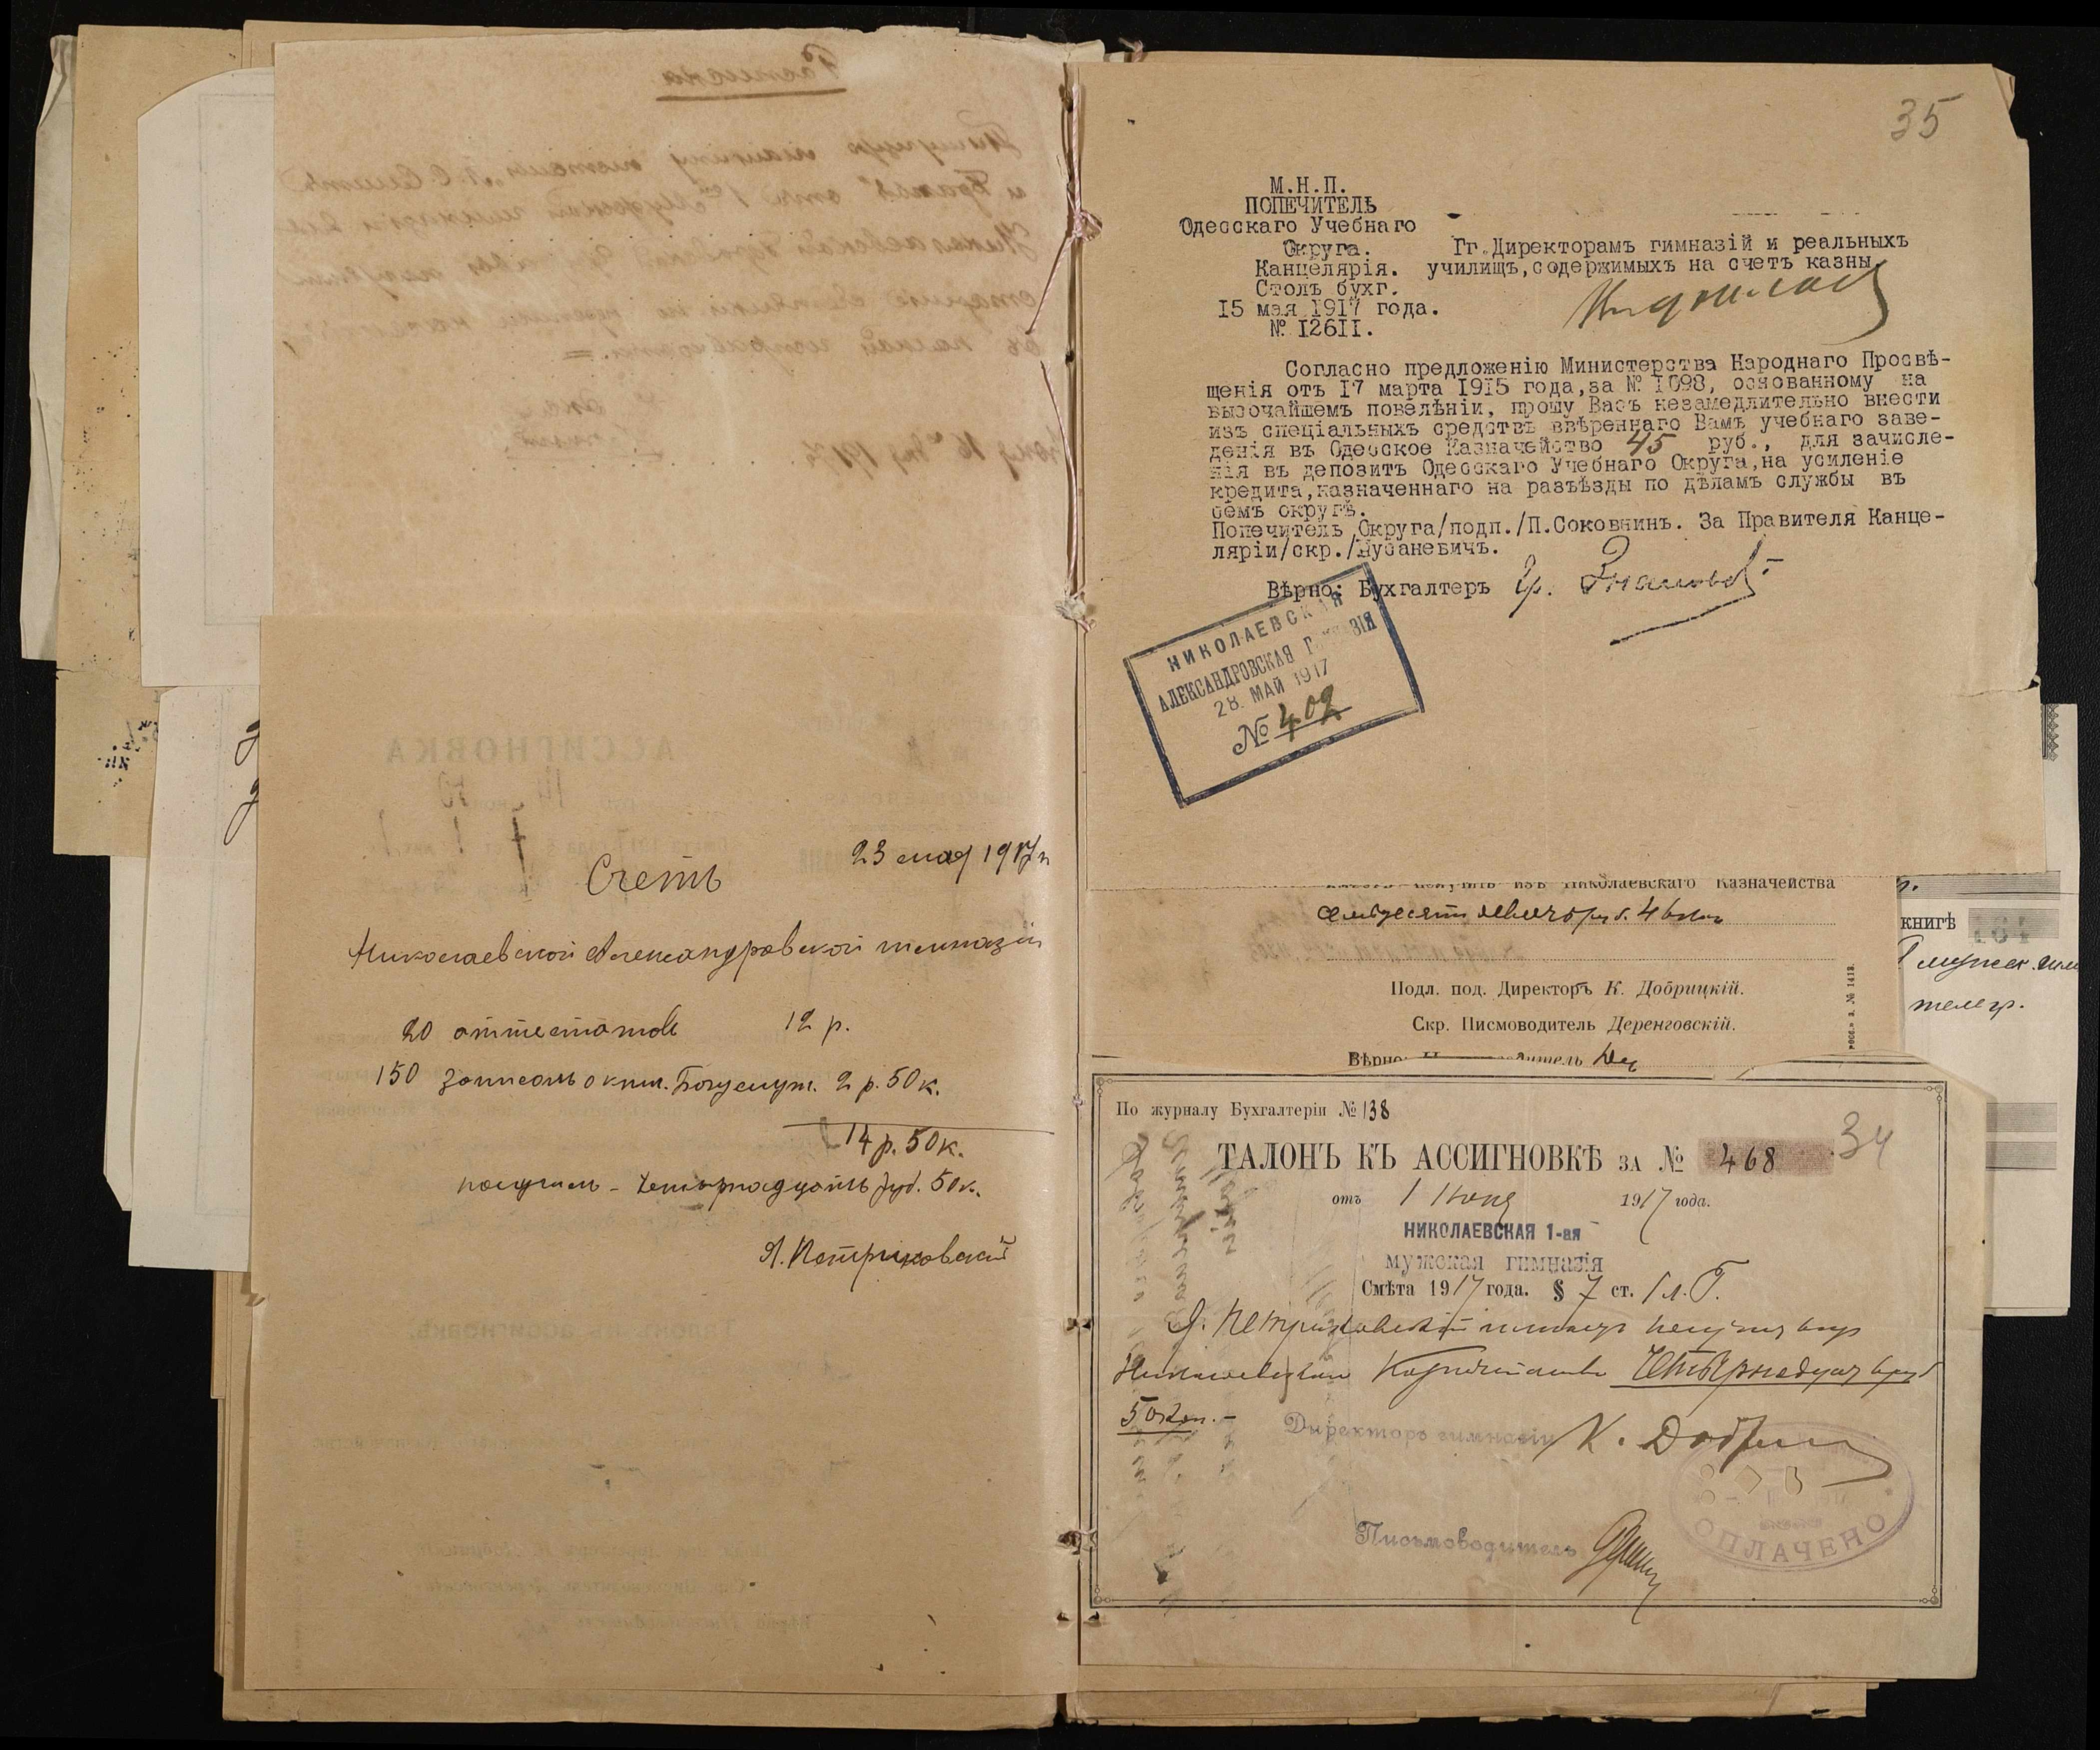 23 мая 1917 г
Счетъ
Николаевской Александровской гимназіи
20 аттестатовъ 12 р.
150 записокъ о кни. 2 р. 50 к.
14 р. 50 к.
получилъ - Четырнадцать руб. 50 к.
Я. Петриковскій
35
М.Н.П.
ПОПЕЧИТЕЛЬ
Одесскаго Учебнаго
Округа.
Канцелярія.
Столъ бухг.
15 мая 1917 года.
№ 12611.
Гг. Директорамъ гимназій и реальныхъ
училищъ, содержимыхъ на счетъ казны.
Согласно предложенію Министерства Народнаго Просвѣ-
щенія отъ 17 марта 1915 года, за № 1098, основанному на
высочайшемъ повелѣніи, прошу Васъ незамедлительно внести
изъ спеціальныхъ средствъ ввѣреннаго Вамъ учебнаго заве-
денія въ Одесское Казначейство 45 руб., для зачисле-
нія въ депозитъ Одесскаго Учебнаго Округа, на усиленіе
кредита, назначеннаго на разъѣзды по дѣламъ службы въ
семъ округѣ.
Попечитель Округа/подп./П.Соковнинъ. За Правителя Канце-
ляріи/скр./
Вѣрно: Бухгалтеръ Гр.
НИКОЛАЕВСКАЯ
АЛЕКСАНДРОВСКАЯ ГИМНАЗІЯ
28. МАЙ 1917
№ 409
получить изъ Николаевскаго Казначейства
руб. 46 коп
Подл. под. Директоръ К. Добрицкій.
Скр. Писмоводитель Деренговскій.
Вѣрно:
книгѣ
телегр.
По журналу Бухгалтеріи № 138
ТАЛОНЪ КЪ АССИГНОВКѢ ЗА № 468
34
отъ 1 Іюня 1917 года.
НИКОЛАЕВСКАЯ 1-ая
мужская гимназія
Смѣта 1917 года. § 7 ст. 1 л. Г.
Я. Петриковскій имѣетъ получить изъ
Николаевскаго Казначейства Четырнадцать руб
50 коп. -
Директоръ гимназіи К.
Письмоводитель
ОПЛАЧЕНО